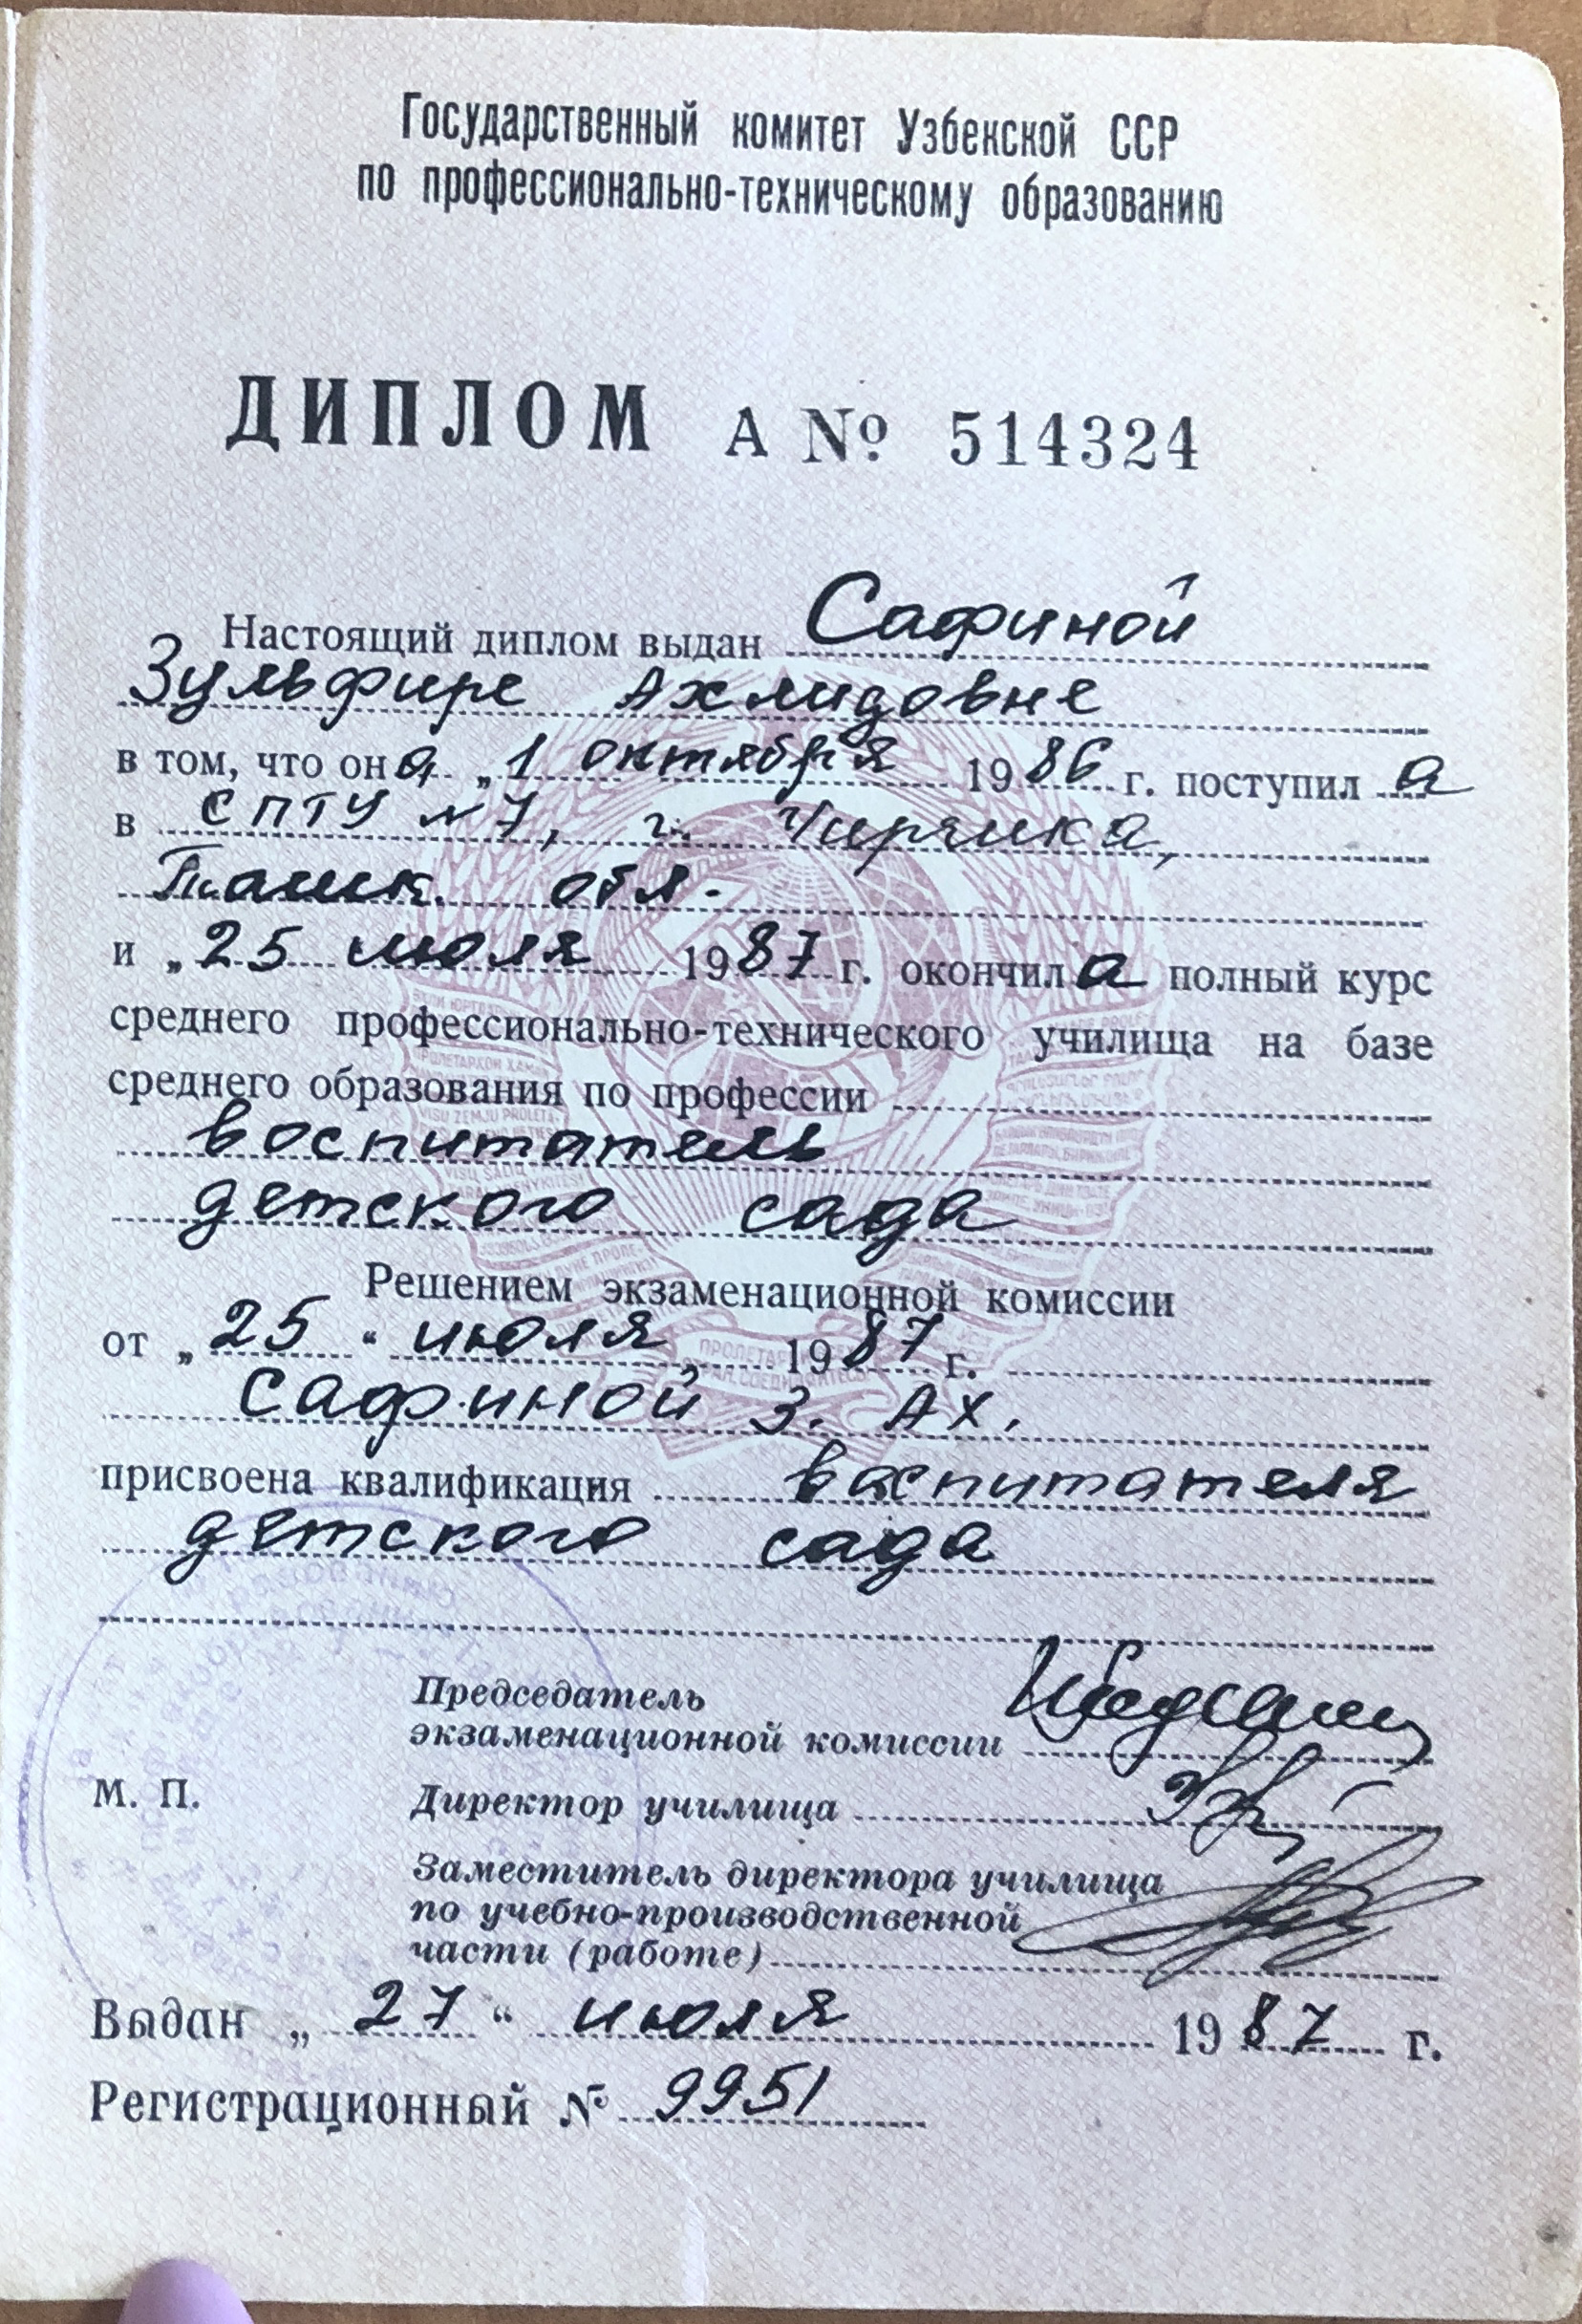 Государственный комитет Узбекской ССР
по профессионально-техническому образованию
ДИПЛОМ А № 514324
Настоящий диплом выдан Сафиной
Зульфире Ахмидовне
в том, что она „1 октября 1986 г. поступила
в СПТУ №7, г. Чирчика,
Ташк. обл.
и „25 июля 1987 г. окончила полный курс
среднего профессионально-технического училища на базе
среднего образования по профессии
воспитатель
детского сада
Решением экзаменационной комиссии
от „25“ июля 1987 г.
Сафиной З. Ах.
присвоена квалификация воспитателя
детского сада
Председатель
экзаменационной комиссии
М. П.
Директор училища
Заместитель директора училища
по учебно-производственной
части (работе)
Выдан „27“ июля 1987 г.
Регистрационный № 9951